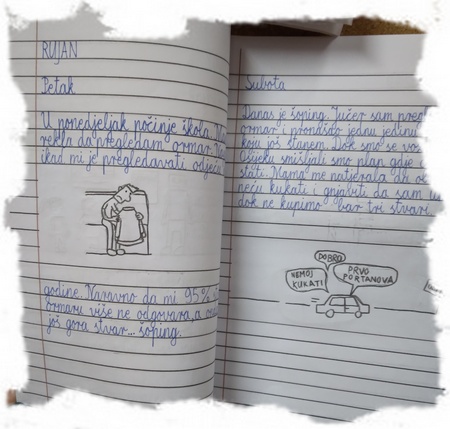 RUJAN
Petak
U ponedjeljak počinje škola.
rekla da pregledam ormar.
ikad mi je pregledavati odjeću
godine. Naravno da mi 95%
ormaru više ne odgovara, a
još gora stvar... šoping.
Subota
Danas je šoping. Jučer sam
ormar i pronašao jednu jedinu
koju još stanem. Dok smo se
Osijeku smišljali smo plan gdje
stati. Mama me natjerala da
neću kukati i gnjaviti da sam
dok ne kupimo bar tri stvari.
DOBRO
NEMOJ
KUKATI
PRVO
PORTANOVA